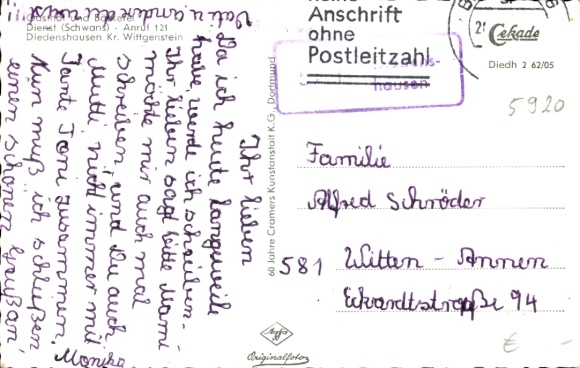 Gasthof und Bäckerei
Dienst (Schwans) - Anruf 121
Diedenshausen Kr. Wittgenstein
Ihr lieben
Da ich heute Langeweile
habe, werde ich schreiben.
Ihr lieben sagt bitte Mami
möchte mir auch mal
schreiben, und Du auch
Mutti nicht immer mit
Tante Toni zusammen.
Nun muß ich schließen
einen schönen Gruß an
Vati u. andere
Monika
60 Jahre Cramers Kunstanstalt K.G., Dortmund
Anschrift
ohne
Postleitzahl
hausen
Cekade
Diedh 2 62/05
5920
Familie
Alfred Schröder
581 Witten - Annen
Eckardtstraße 94
Agfa
Originalfoto
€ -